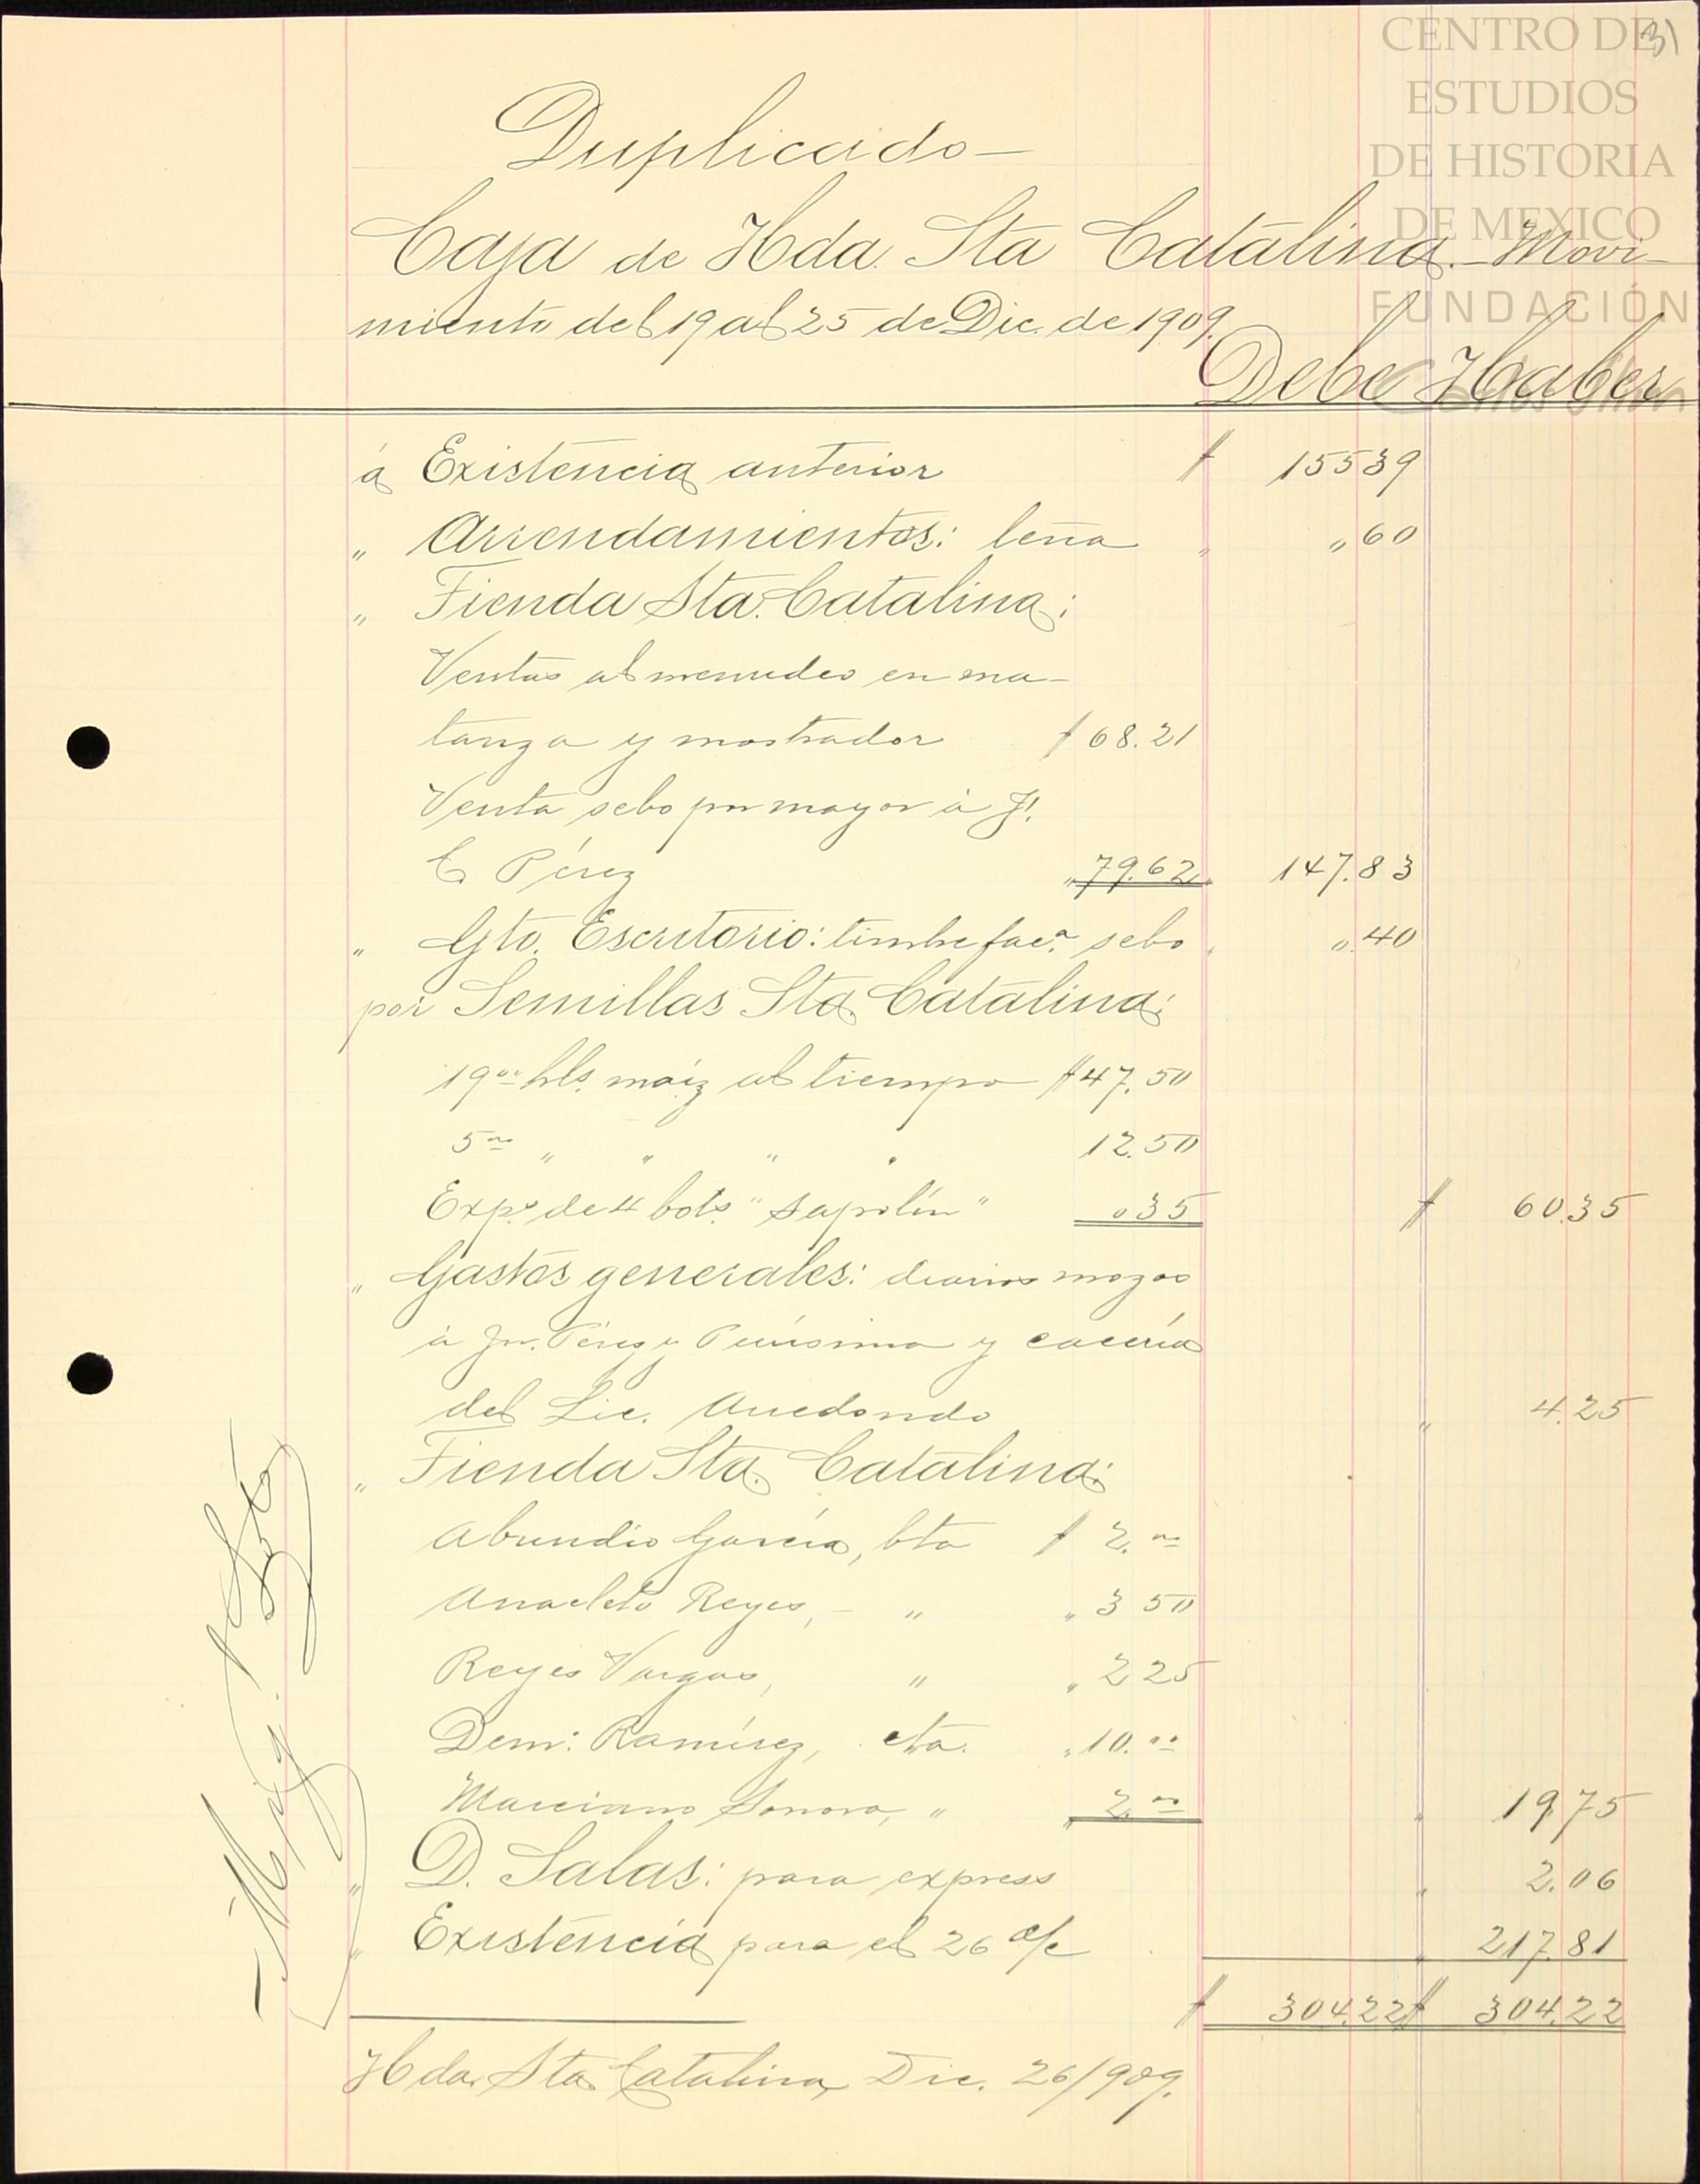 CENTRO DE
ESTUDIOS
DE HISTORIA
DE MEXICO
FUNDACIÓN
31
Duplicado
Caja de Hda. Sta Catalina.- Movi-
miento del 19 al 25 de Dic. de 1909.
Debe Haber
á Existencia anterior $ 155 39
" Arrendamientos: leña " " 60
" Tienda Sta. Catalina:
Ventas al menudeo en ma-
tanza y mostrador $ 68.21
Venta sebo por mayor á J.
C. Pérez " 79.62 " 147.83
" Gto. Escritorio: timbre fac.ª sebo " ".40
por Semillas Sta. Catalina:
19 °° hls. maíz al tiempo $ 47.50
5 °° " " " " 12.50
Exp.º de 4 bots. "Sapolín" " 35 $ 60.35
" Gastos generales: diarios mozos
á Jn. Pérez y Purísima y cacería
del Lic. Arredondo " 4.25
" Tienda Sta. Catalina:
Abundio García, bta $ 2.°°
Anacleto Reyes, - " " 3 50
Reyes Vargas, " " 2 25
Dem: Ramírez, cta. " 10.°°
Marciano Sonora, " " 2.°° " 19.75
" D. Salas: para express " 2.06
" Existencia para el 26 a/c " 217.81
$ 304.22 $ 304.22
Hda. Sta. Catalina, Dic. 26/909.
Soto